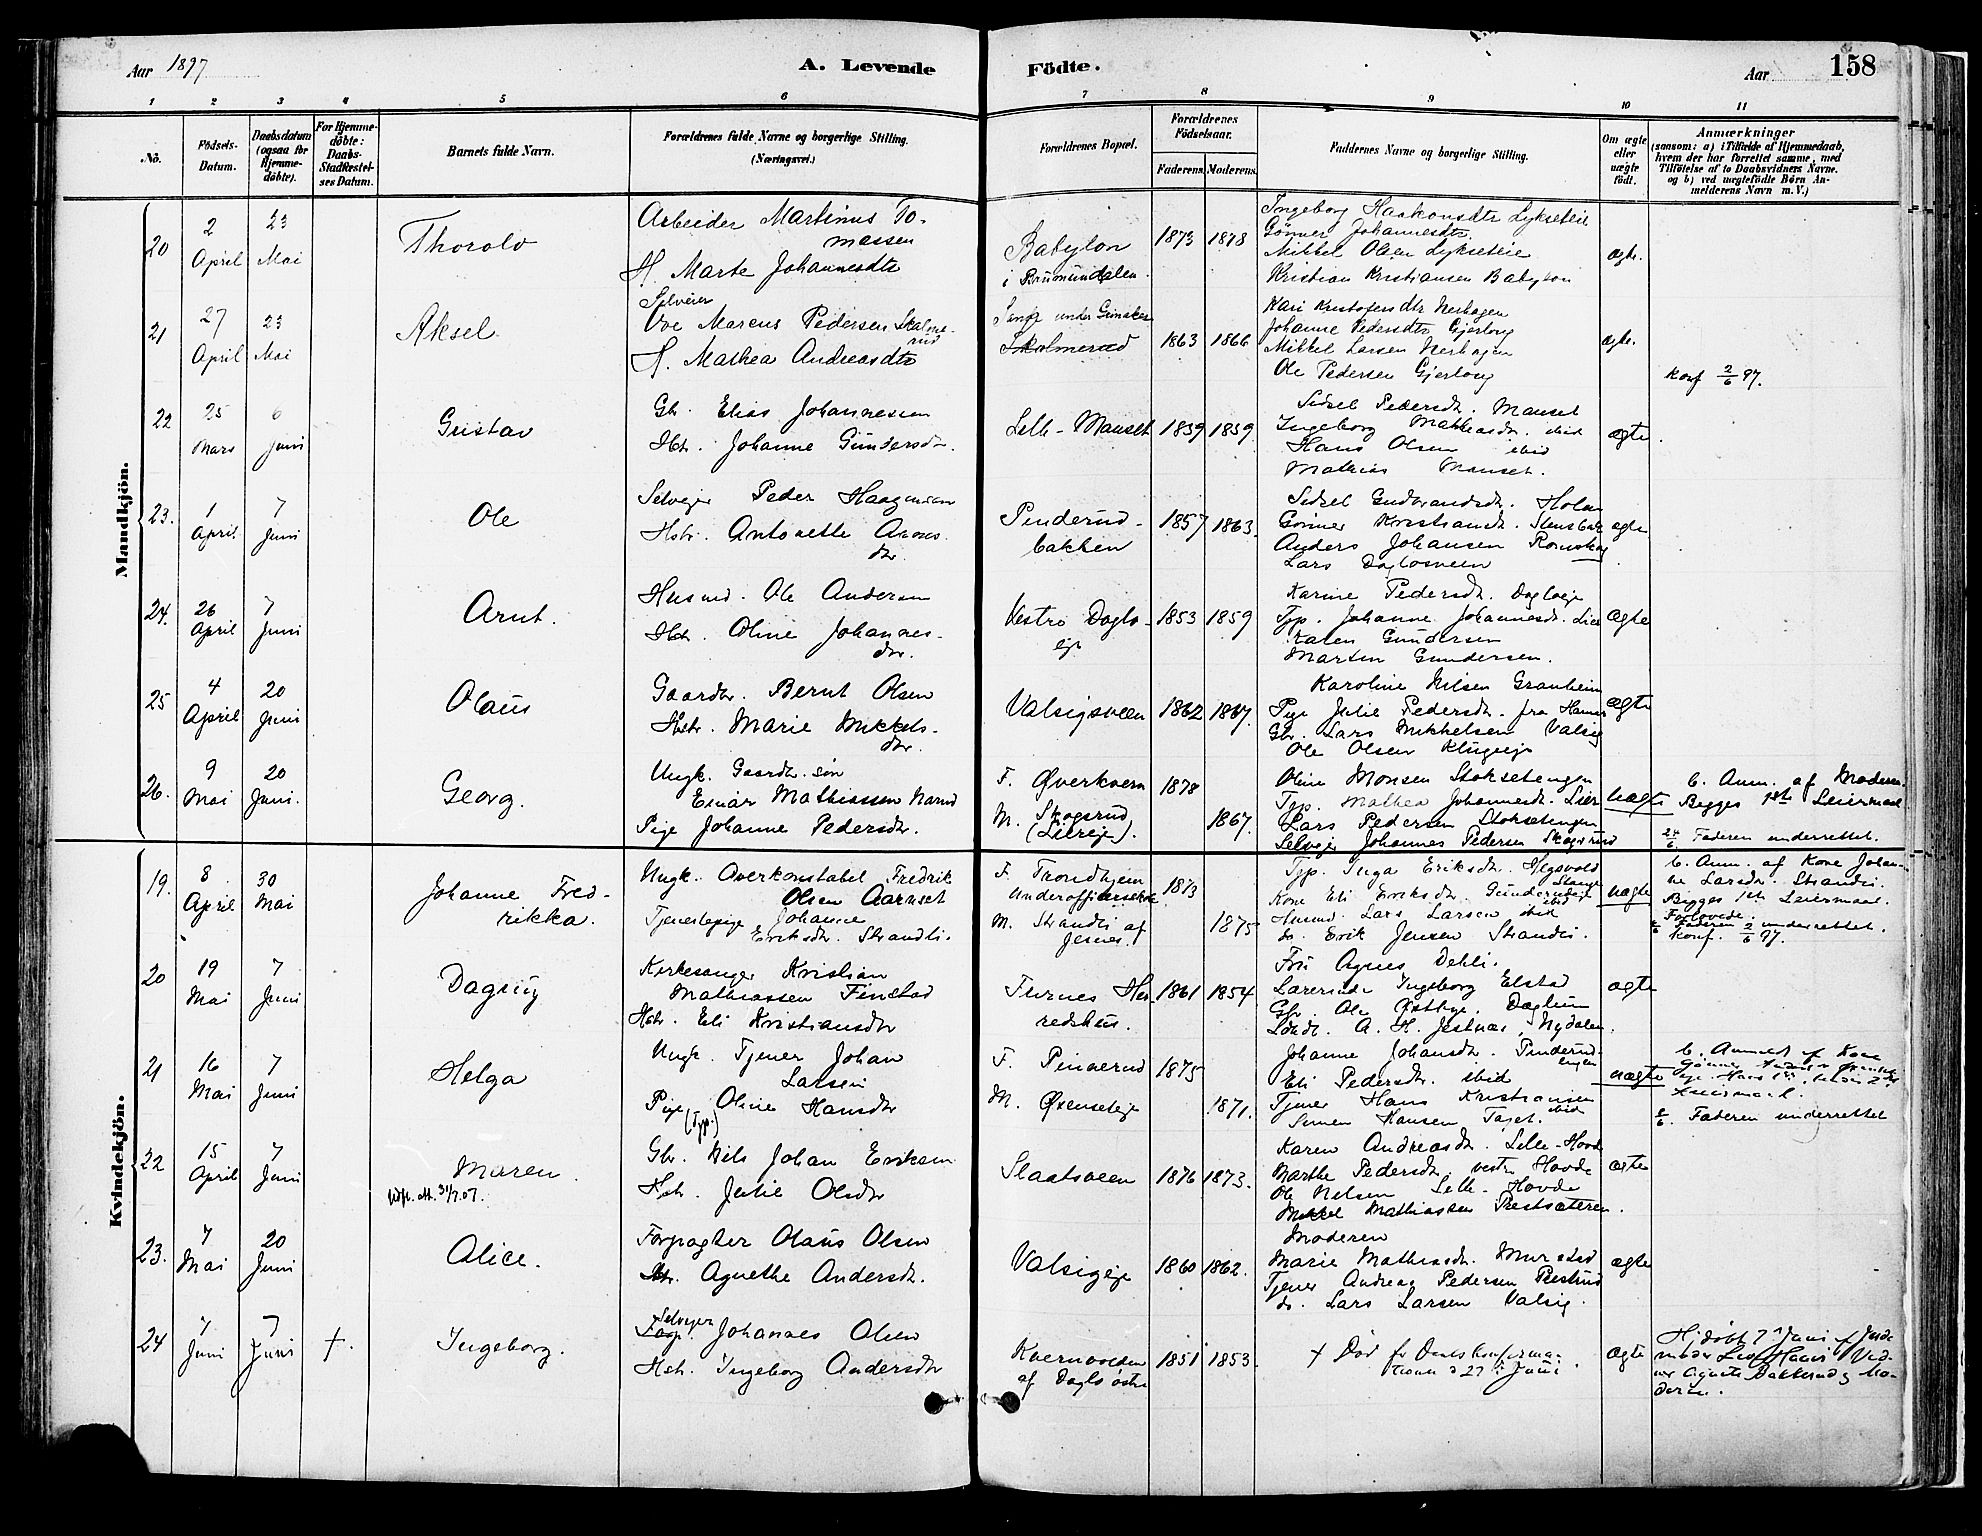 Aar 1897
A. Levende Födte.
Aar
158
1 2 3 4 5 6 7 8 9 10 11
No.
Födsels-Datum.
Daabsdatum (ogsaa for Hjemme-döbte).
For Hjemme-döbte: Daabs-Stadfæstel-ses Datum.
Barnets fulde Navn.
Forældrenes fulde Navne og borgerlige Stilling. (Næringsvei.)
Forældrenes Bopæl.
Forældrenes Födselsaar.
Faderens. Moderens.
Faddernes Navne og borgerlige Stilling.
Om ægte eller uægte födt.
Anmærkninger
(saasom: a) i Tilfælde af Hjemmedaab, hvem der har forrettet samme, med Tilföielse af to Daabsvidners Navne. og b) ved uægtefödte Börn An-melderens Navn m.V.)
Mandkjön.
20
2 April
23 Mai
Thorolv
Arbeider Martinus To-
massen
H. Marte Johannesdtr
Babylon
i Brumunddalen.
1873 1878
Ingeborg Haakonsdtr Lykseteie
Gönner Johannesdtr
Mikkel Olsen Lykseteie
Kristian Kristiansen Babylon
ægte.
21
27 April
23 Mai
Aksel
Selveier
Ove Marcus Pedersen Skolme-
rud
H. Mathea Andreasdtr
under
Skolmerud
1863 1866
Kari Kristofersdtr Nerhagen
Johanne Pedersdtr Gjerlong
Mikkel Larsen Nerhagen
Ole Pedersen Gjerlong
ægte.
Konf 2/6 97.
22
25 Mars
6 Juni
Gustav
Gbr. Elias Johannesen
Hstr. Johanne Gundersdtr.
Lille-Mauset
1859 1859
Sidsel Pedersdtr. Mauset
Ingeborg Mathiasdtr. ibid
Hans Olsen ibid
Mathias Mauset.
ægte
23.
1 April.
7 Juni
Ole
Selveier Peder Haagensen
Hstr. Antonette Arons-
dtr.
Pinderud-
bakken
1857 1863.
Sidsel Gudbrandsdtr. Holen
Gönner Kristiansdtr. Stensbak
Anders Johansen Romskog
Lars Dagloveen
ægte
24.
26 April
7 Juni
Arnt.
Husmd. Ole Andersen
Hstr. Oline Johannes-
dtr.
Vestre Daglo-
eje
1853 1859
Karine Pedersdtr. Dagloeje
Tjp. Johanne Johannesdtr. Lier
Karen Gundersen
Marten Gundersen.
ægte
25
4 April
20 Juni
Olaus
Gaardbr. Bernt Olsen
Hstr. Marie Mikkels-
dtr.
Valsigsveen
1862 1867.
Karoline Nilsen Granheim
Pige Julie Pedersdtr. fra Hamar
Gbr. Lars Mikkelsen Valsig
Ole Olsen Klugseje
ægte
26.
9 Mai
20 Juni.
Georg.
Ungk. Gaardbr. søn
Einar Mathiassen Narud
Pige Johanne Pedersdtr.
F. Øverkvern
M. Skogsrud
(Liereje).
1878
1867.
Oline Monsen Stoksetengen
Tjp. Mathea Johannesdtr. Lier
Lars Pedersen Stoksetengen
Selvejer Johannes Pedersen Skogsrud
uægte
b. Anm. af Moderen.
Begges 1ste Leiermaal
24/6 Faderen underrettet.
Kvindekjön.
19.
8 April
30 Mai
Johanne Fred-
rikka.
Ungk. Overkonstabel Fredrik
Olsen Aarnset
Tjenestepige Johanne
Eriksdtr. Strandli.
F. Trondhjem
Underofficersskole
M. Strandli af
Jesnes.
1873
1875
Tjp. Inga Eriksdtr. Hegsvold
Stange
Kone Eli Eriksdtr. Gunderudeje
ibid
Husmd. Lars Larsen ibid
do. Erik Jensen Strandli.
uægte
b. Anm. af Kone Johan-
ne Larsdtr. Strandli.
Begges 1ste Leiermaal.
Forlovede.
Faderen underrettet.
Konf. 2/6 97.
20
19 Mai
7 Juni
Dagny
Kirkesanger Kristian
Mathiassen Finstad
Hstr. Eli Kristiansdtr
Furnes He-
redshus.
1861 1854
Fru Agnes Dehli.
Lærerinde Ingeborg Elstad
Gbr. Ole Østbye. Daglum
Løidt. A. H. Jestnæs, Nydalen.
ægte
21
16 Mai
7 Juni
Helga
Ungk. Tjener Johan
Larsen
Pige Oline Hansdtr
(Tjp.)
F. Pinderud
M. Øxenseteje
1875
1871.
Johanne Johansdtr. Pinderud-
engen
Eli Pedersdtr. ibid
Tjener Hans Kristiansen
ibid
Simen Hansen Taget.
uægte
b. Anmeldt af Kone
Leiermaal.
8/6. Faderen underrettet
22
15 April
7 Juni
Maren.
Udfl. att. 31/7.07.
Gbr. Nils Johan Eriksen
Hstr. Julie Olsdtr
Slaatsveen
1876 1873.
Karen Andreasdtr. Lille-Hovde
Marthe Pedersdtr. vestre Hovde
Ole Nielsen Lille-Hovde
Mikkel Mathiassen Prestsæteren.
ægte
23.
7 Mai
20 Juni
Alice.
Forpagter Olaus Olsen
Hstr. Agnethe Andersdtr.
Valsigeje
1860 1862.
Moderen
Marie Mathiasdtr. Murstad
Tjener Andreas Pedersen Prestrud
do. Lars Larsen Valsig.
ægte
24
7 Juni
7 Juni
+.
Ingeborg.
Selvejer
Forp. Johannes Olsen
Hstr. Ingeborg Andersdtr
Kvernvolden
af Daglo østre
1851 1853.
+ Død før Daabskonfirma-
tionen d 27de Juni.
ægte
Hj.døbt 7de Juni af Jorde-
moder
ner Agnete Bakkerud og Mo-
deren.